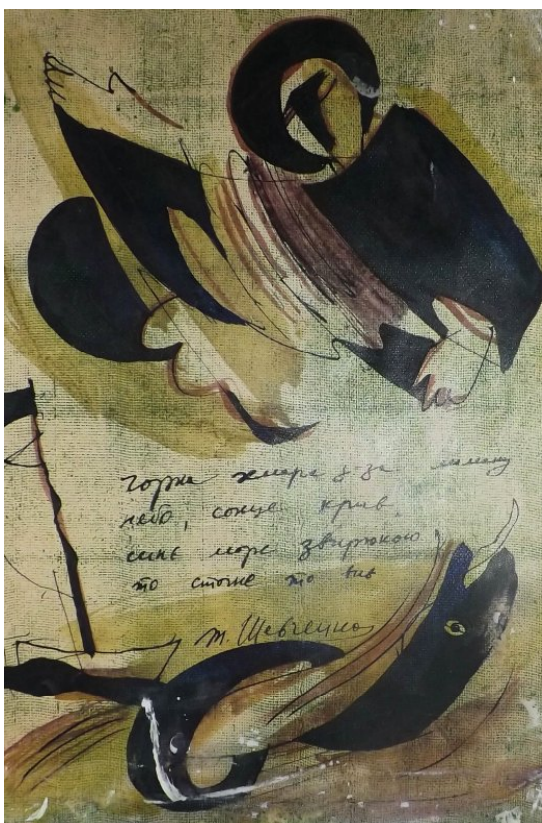 чорна хмара з-за лиману
небо, сонце криє.
синє море звірюкою
то стогне то виє
Т. Шевченко